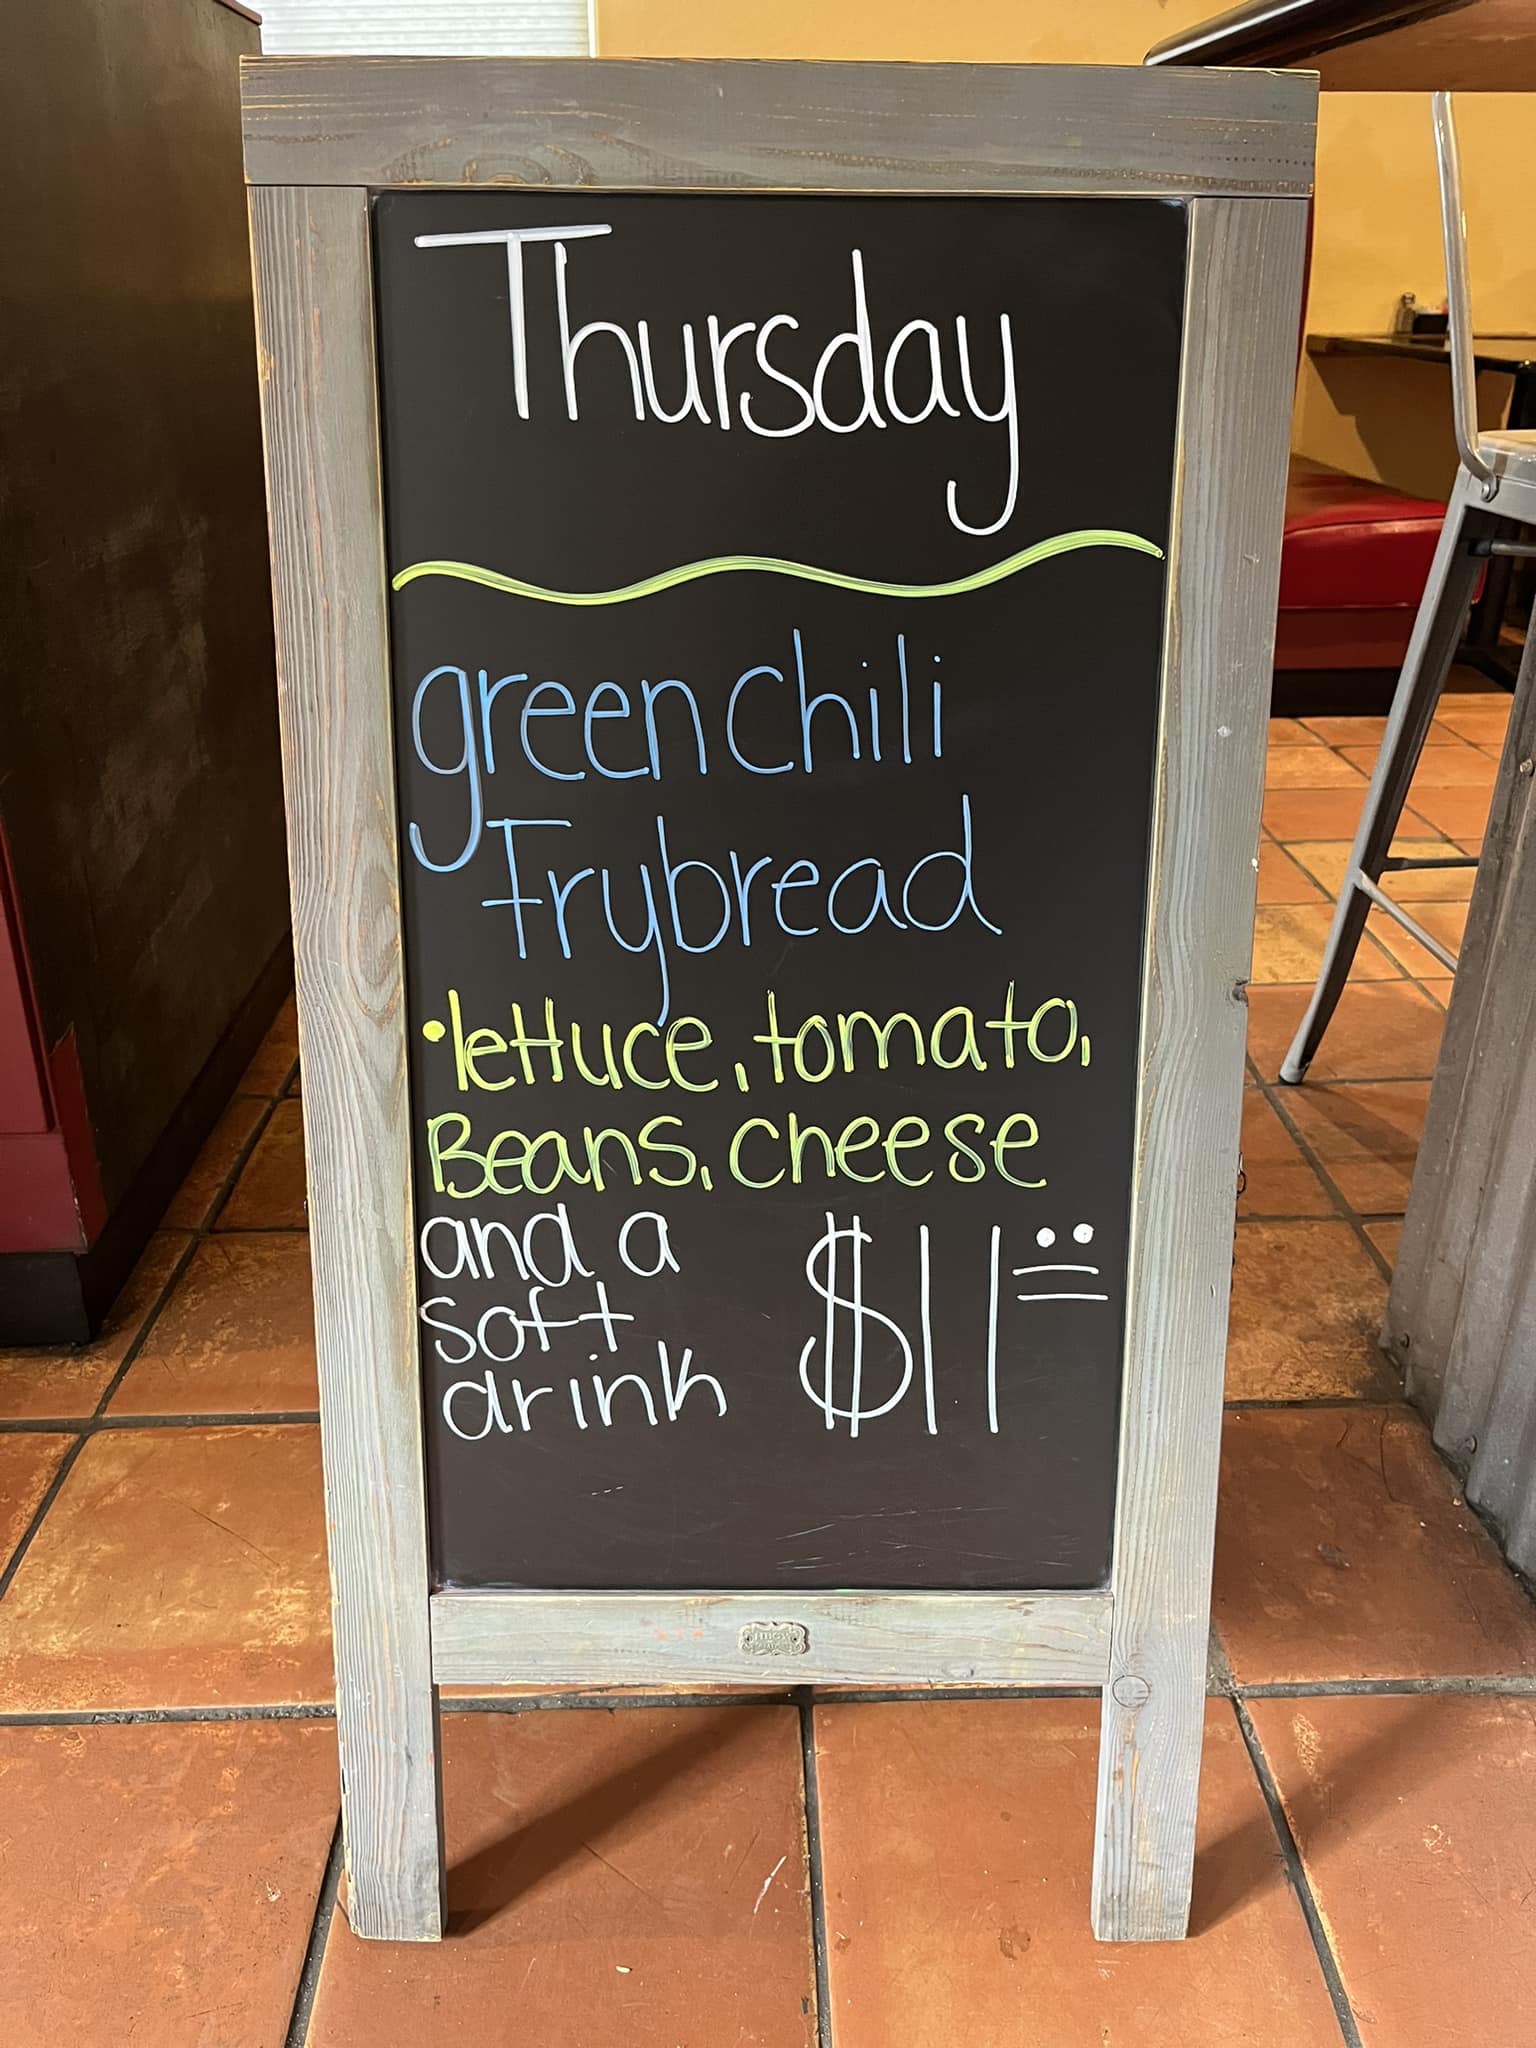 Thursday
green chili
Frybread
•lettuce, tomato,
Beans, cheese
and a
soft
drink
$11